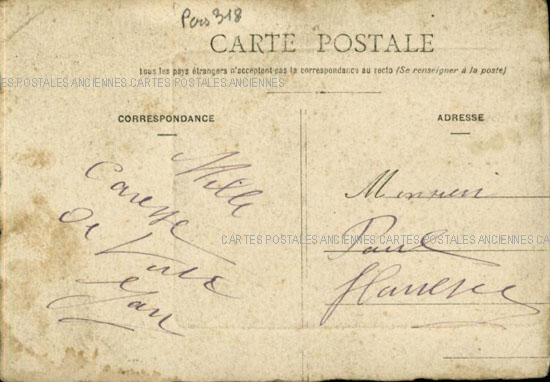 Pers 318
CARTE POSTALE
Tous les pays étrangers n'acceptent pas la correspondance au recto (Se renseigner à la poste)
CARTES POSTALES ANCIENNES CARTES POSTALES ANCIENNES
CORRESPONDANCE
Mille
Caresse
de
ADRESSE
Monsieur
Paul
CARTES POSTALES ANCIENNES CARTES POSTALES ANCIENNES